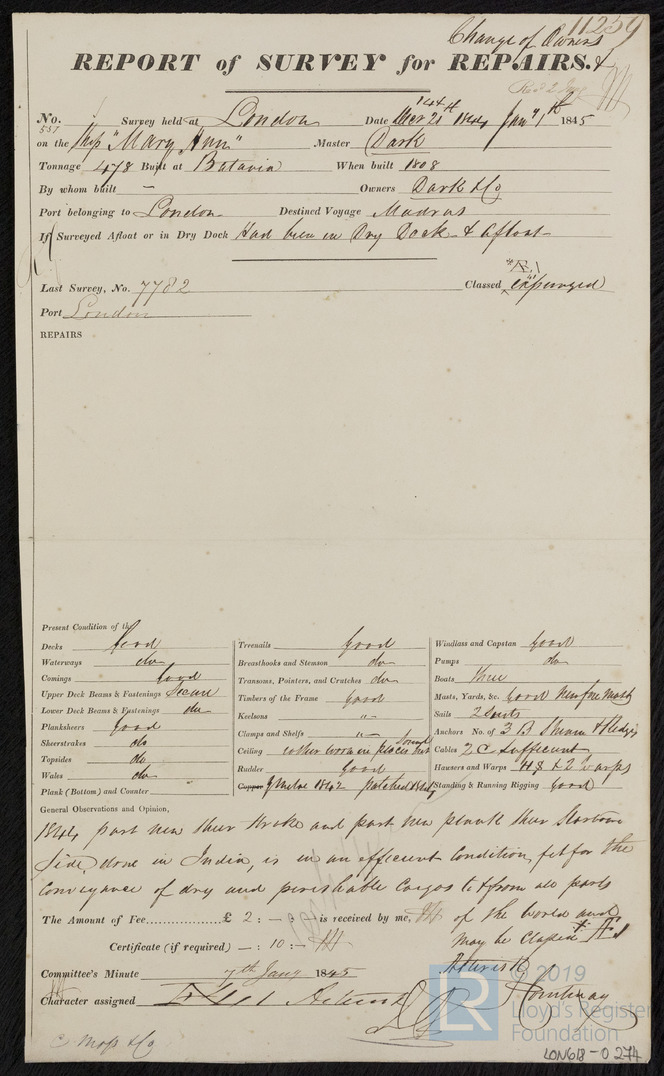 11259
Change of Owners
REPORT of SURVEY for REPAIRS. &
No. 557 Survey held at London Date Decr 21 1844 Jany 1st 1845
on the Ship "Mary Ann" Master Dark
Tonnage 478 Built at Batavia When built 1808
By whom built - Owners Dark & Co
Port belonging to London Destined Voyage Madras
If Surveyed Afloat or in Dry Dock Had been in Dry Dock & Afloat
Last Survey, No. 7782 Classed expunged
Port London
REPAIRS
Present Condition of the
Decks Good
Waterways do
Comings Good
Upper Deck Beams & Fastenings Secure
Lower Deck Beams & Fastenings do
Planksheers Good
Sheerstrakes do
Topsides do
Wales do
Plank (Bottom) and Counter
Treenails Good
Breasthooks and Stemson do
Transoms, Pointers, and Crutches do
Timbers of the Frame Good
Keelsons "
Clamps and Shelfs "
Ceiling rather worn in places but Sound
Rudder Good
Copper Y Metal 1842 patched
Windlass and Capstan Good
Pumps do
Boats Three
Masts, Yards, &c. Good New fore Mast
Sails 2 Suits
Anchors No. of 3 B Stream & Kedges
Cables 2 C sufficient
Hausers and Warps 4 & 2 warps
Standing & Running Rigging Good
General Observations and Opinion,
1844 part new sheer strake and part new plank sheer Starboard
side, done in India, is in an efficient condition, fit for the
conveyance of dry and perishable Cargos to & from all parts
of the world and
may be Classed Æ1
The Amount of Fee £ 2 : - : - is received by me,
Certificate (if required) - : 10 : -
Asterisk
Committee's Minute 7th Jany 1845
Character assigned
Courtenay
LR
© 2019
Lloyd's Register
Foundation
LON618-0274